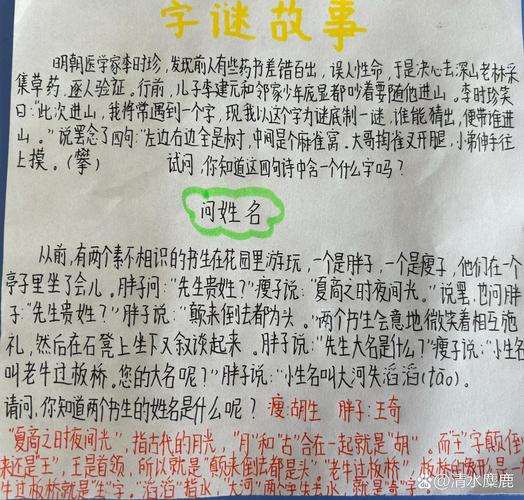 字谜故事
明朝医学家李时珍,发现前人有些药书差错百出,误人性命,于是决心去深山老林采
集草药,逐人验证。行前,儿子李建元和邻家少年庞显都吵着要随他进山。李时珍笑
曰:"此次进山,我将常遇到一个字,现我以这个字为谜底制一谜,谁能猜出,便带谁进
山。"说罢念了四句:"左边右边全是树,中间是个麻雀窝。大哥掏雀又开腿,小弟伸手往
上摸。(攀) 试问,你知道这四句诗中含一个什么字吗?
问姓名
从前,有两个素不相识的书生在花园里游玩,一个是胖子,一个是瘦子,他们在一个
亭子里坐了会儿。胖子问:"先生贵姓?"瘦子说:"夏商之时夜间光。"说罢,也问胖
子:"先生贵姓?"胖子说:"颠来倒去都为头。"两个书生会意地微笑着相互施
礼,然后在石凳上坐下又叙谈起来。胖子说:"先生大名是什么?"瘦子说:"小生名
叫老牛过板桥。您的大名呢?"胖子说:"小生名叫大河失滔滔(tāo)。
请问,你知道两个书生的姓名是什么呢? 瘦:胡生 胖子:王奇
"夏商之时夜间光",指古代的月光,"月"和"古"合在一起就是"胡"。而"王"字颠倒
来还是"王",王是首领,所以就是"颠来倒去都是头""老牛过板桥",板桥的象形是一
生过板桥就是"生"字,"滔滔"指水,"大河"两个字失去水,就是"奇"字
@清水麋鹿